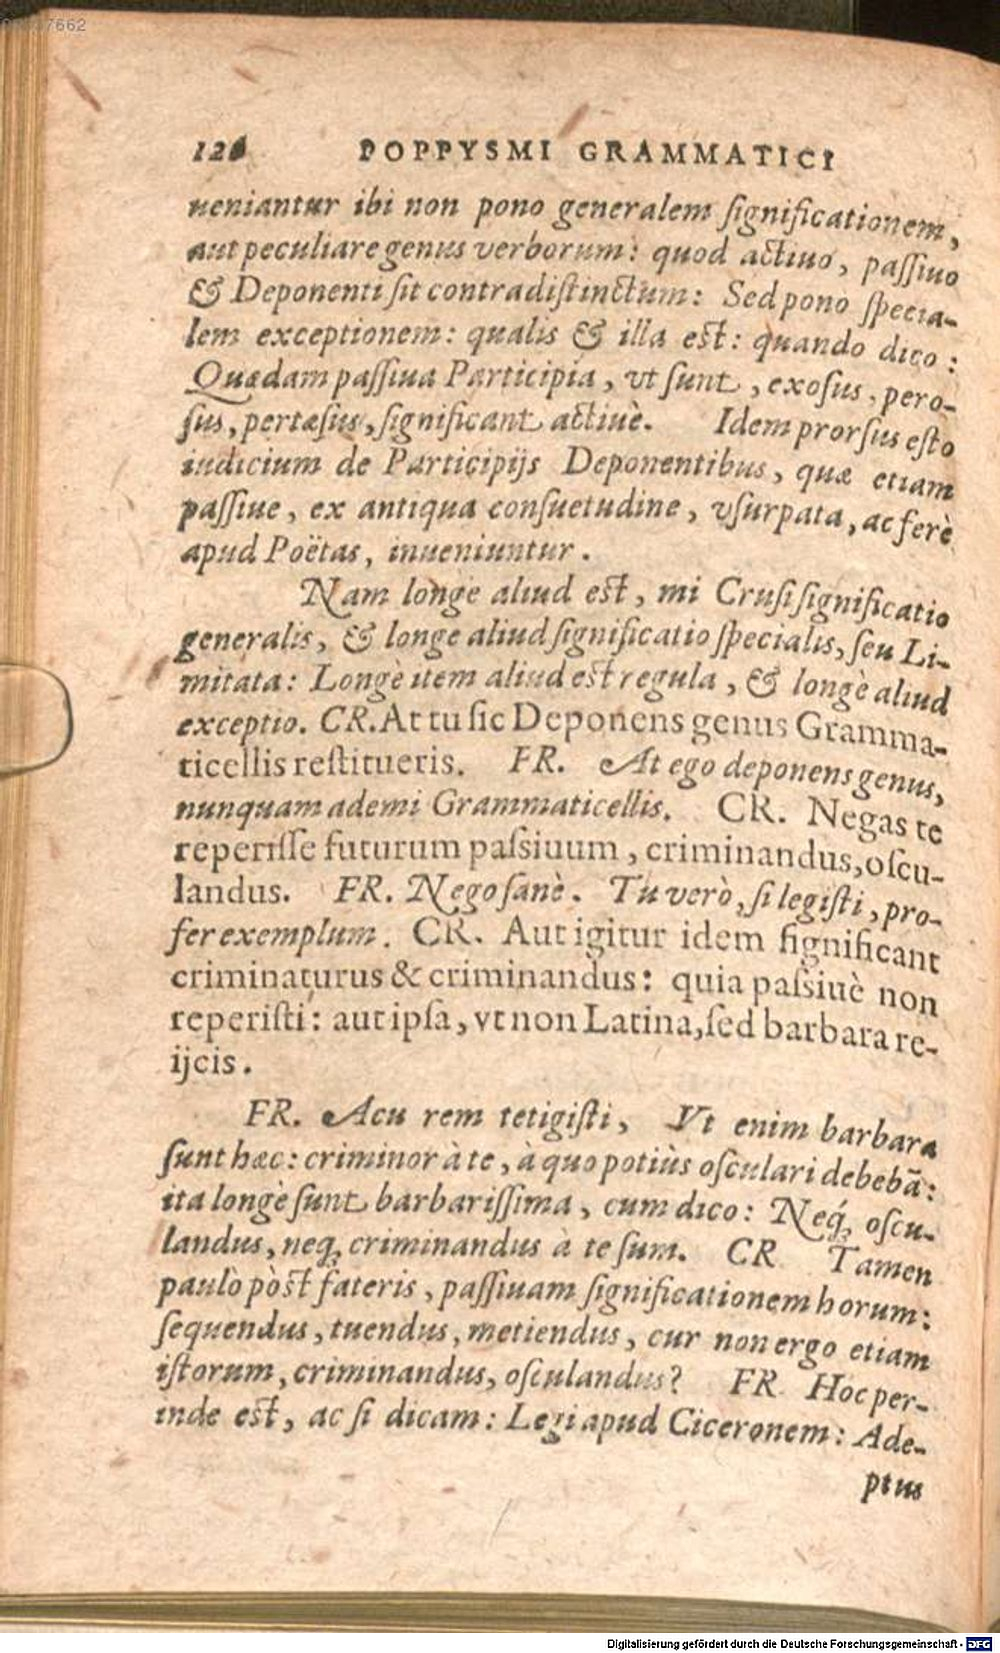 POPPYSMI GRAMMATICI
ueniantur ibi non pono generalem ſignificationem,
aut peculiare genus verborum: quod actiuo, paſſiuo
& Deponenti ſit contradiſtinctum: Sed pono ſpecia-
lem exceptionem: qualis & illa eſt: quando dico:
Quædam paſſiua Participia, vt ſunt, exoſus, pero-
ſus, pertæſus, ſignificant actiuè. Idem prorſus eſto
iudicium de Participijs Deponentibus, quæ etiam
paſſiue, ex antiqua conſuetudine, vſurpata, ac ferè
apud Poëtas, inueniuntur.
Nam longe aliud eſt, mi Cruſi ſignificatio
generalis, & longe aliud ſignificatio ſpecialis, ſeu Li-
mitata: Longè item aliud eſt regula, & longè aliud
exceptio. CR. At tu ſic Deponens genus Gramma-
ticellis reſtitueris. FR. At ego deponens genus,
nunquam ademi Grammaticellis. CR. Negas te
reperiſſe futurum paſsiuum, criminandus, oſcu-
landus. FR. Nego ſanè. Tu verò, ſi legiſti, pro-
fer exemplum. CR. Aut igitur idem ſignificant
criminaturus & criminandus: quia paſsiuè non
reperiſti: aut ipſa, vt non Latina, ſed barbara re-
ijcis.
FR. Acu rem tetigiſti, Vt enim barbara
ſunt hæc: criminor à te, à quo potiùs oſculari debebā:
ita longè ſunt barbariſſima, cum dico: Neq́; oſcu-
landus, neq; criminandus à te ſum. CR Tamen
paulò pòſt fateris, paſſiuam ſignificationem horum:
ſequendus, tuendus, metiendus, cur non ergo etiam
iſtorum, criminandus, oſculandus? FR. Hoc per-
inde eſt, ac ſi dicam: Legi apud Ciceronem: Ade-
ptus
Digitalisierung gefördert durch die Deutsche Forschungsgemeinschaft - DFG